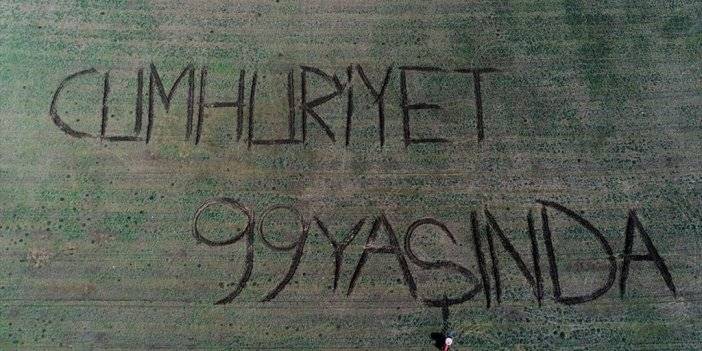 CUMHURİYET
99 YAŞINDA